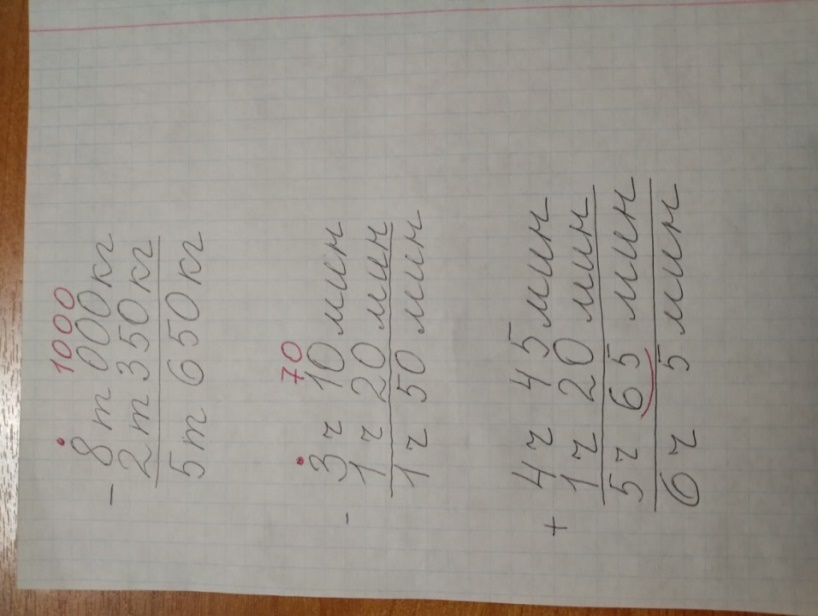 1000
- 8 т 000 кг
2 т 350 кг
5 т 650 кг
70
- 3 ч 10 мин
1 ч 20 мин
1 ч 50 мин
+ 4 ч 45 мин
1 ч 20 мин
5 ч 65 мин
6 ч 5 мин